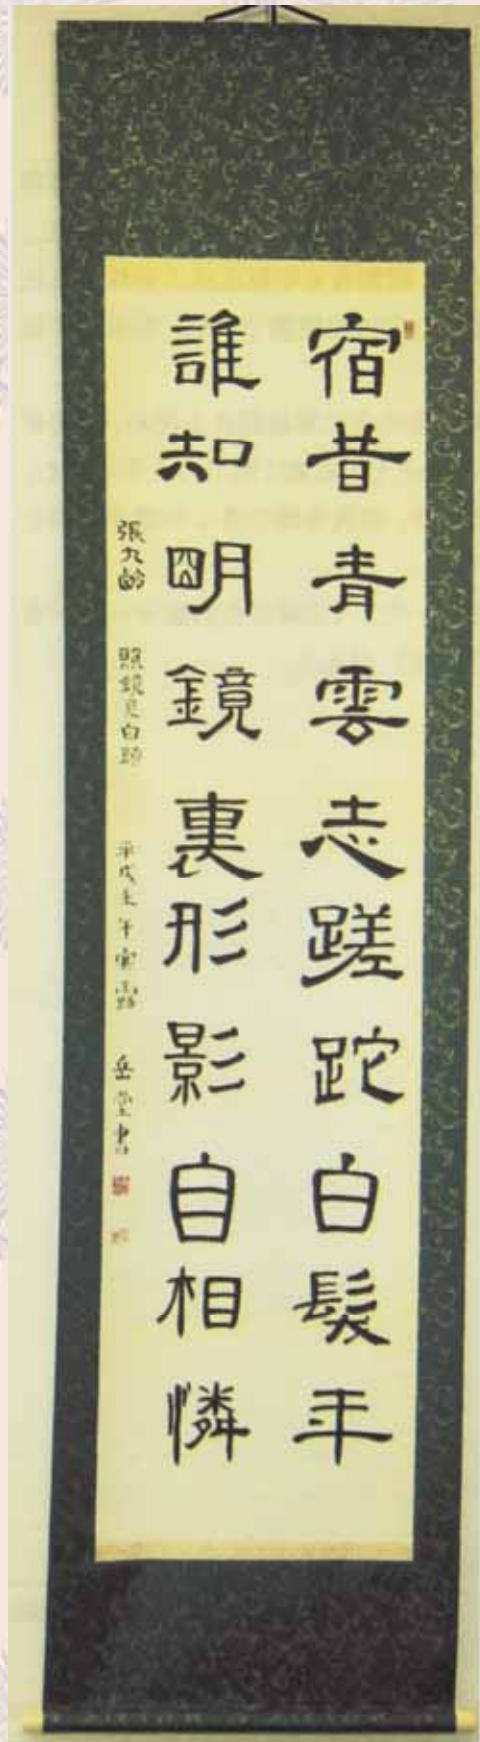 宿昔青雲志蹉跎白髮年
誰知明鏡裏形影自相憐
張九齡 照鏡見白髮 平成壬午寒露 岳堂書